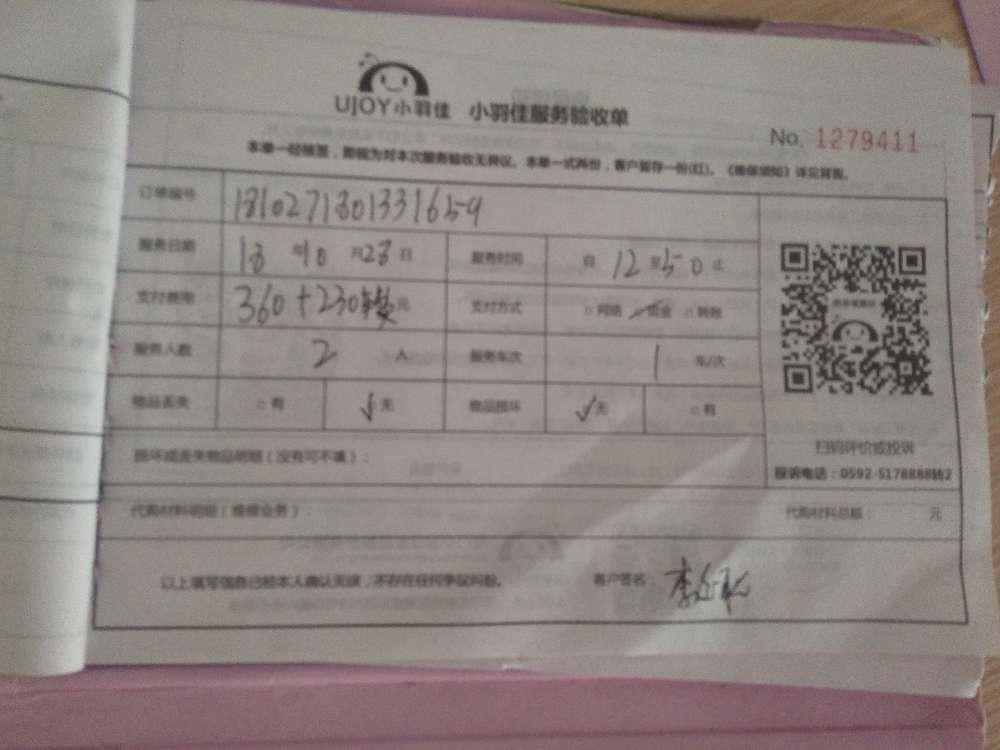 UJOY小羽佳 小羽佳服务验收单
No. 1279411
本单一经签署，即视为对本次服务验收无异议。本单一式两份，客户留存一份(红)。《维保须知》详见背面。
订单编号 181027180133165-9
服务日期 18 年 10 月 28 日 服务时间 自 12 至 50 止
支付费用 360+230 元 支付方式 □网络 □现金 □转账
服务人数 2 人 服务车次 1 车/次
物品丢失 □有 √无 物品损坏 √无 □有
扫码评价或投诉
损坏或丢失物品明细（没有可不填）：
投诉电话：0592-5178888转2
代购材料明细（维修业务）： 代购材料总额： 元
以上填写信息已经本人确认无误，不存在任何争议纠纷。 客户签名：